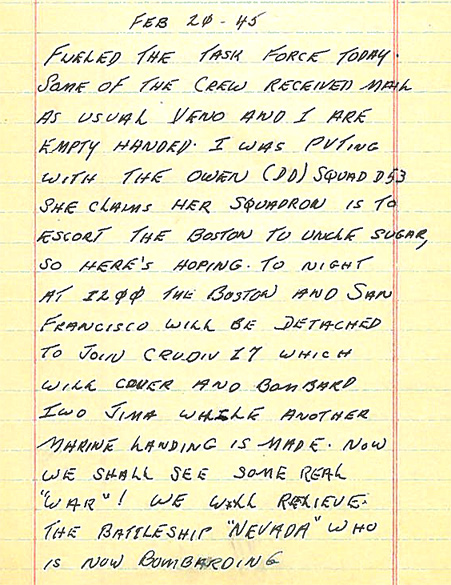 FEB 20-45
FUELED THE TASK FORCE TODAY.
SOME OF THE CREW RECEIVED MAIL
AS USUAL VENO AND I ARE
EMPTY HANDED. I WAS PUTING
WITH THE OWEN (DD) SQUAD D53
SHE CLAIMS HER SQUADRON IS TO
ESCORT THE BOSTON TO UNCLE SUGAR,
SO HERE'S HOPING. TO NIGHT
AT 1200 THE BOSTON AND SAN
FRANCISCO WILL BE DETACHED
TO JOIN CRUDIV 17 WHICH
WILL COVER AND BOMBARD
IWO JIMA WHILE ANOTHER
MARINE LANDING IS MADE. NOW
WE SHALL SEE SOME REAL
"WAR"! WE WILL RELIEVE.
THE BATTLESHIP "NEVADA" WHO
IS NOW BOMBARDING